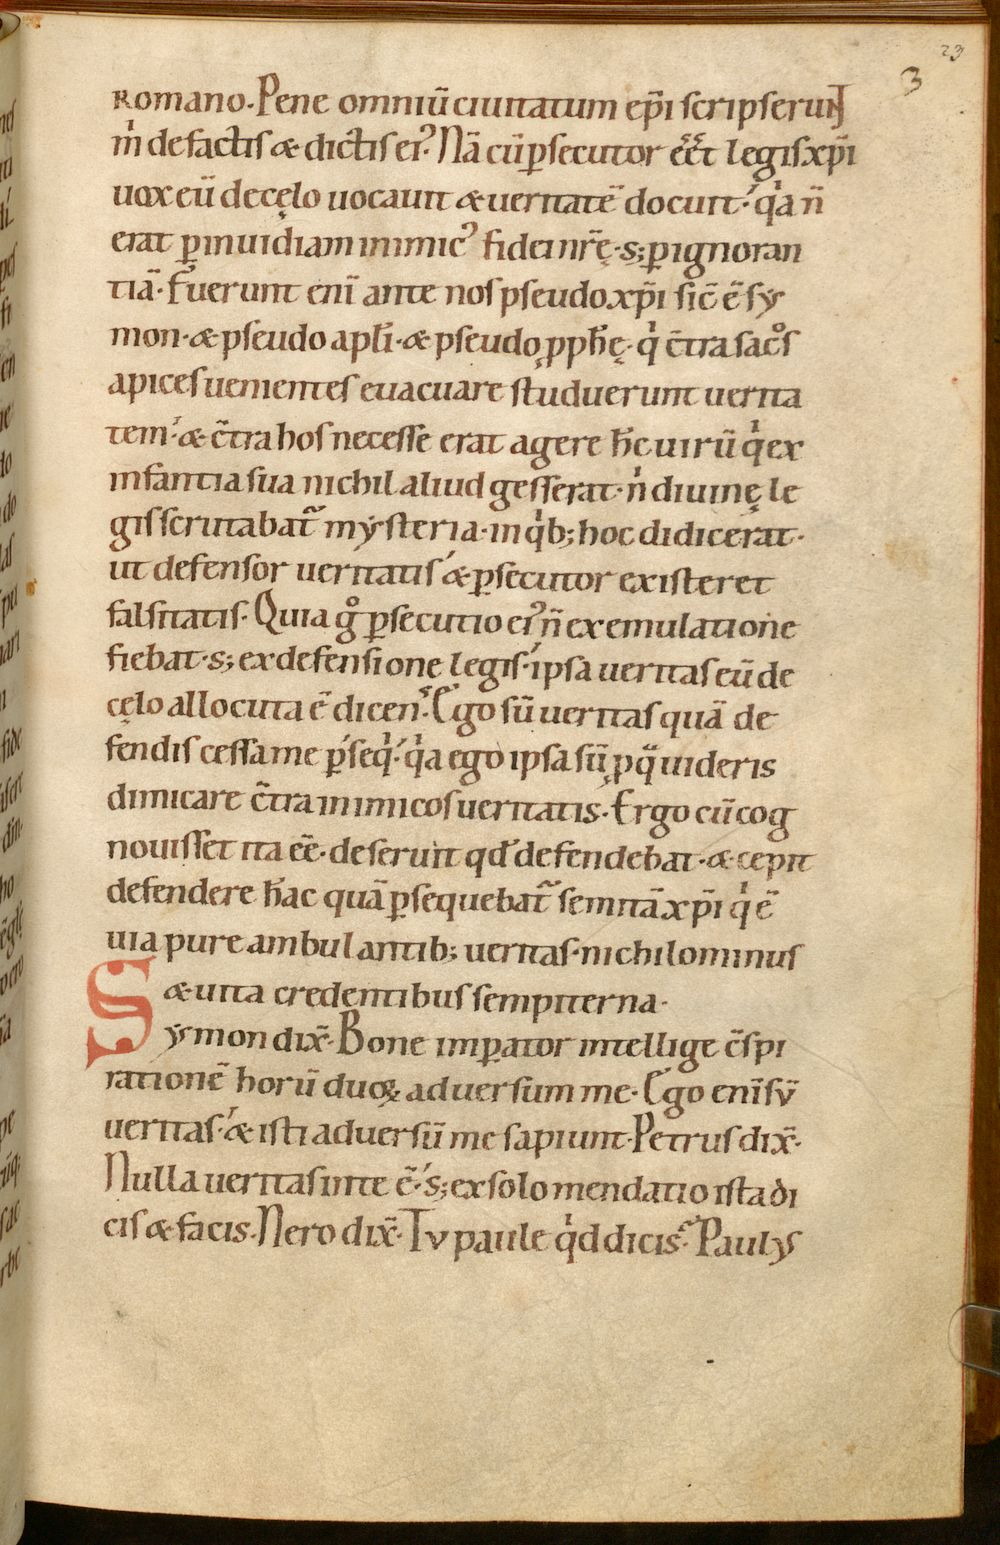 23
3
Romano. Pene omniū ciuitatum ep̄i scripserunt
m̍ de factis & dictis ei᾽. Nā cū ꝑsecutor eēt legis xp̄i
uox eū de cęlo uocauit & ueritatē docuit. q̍a n̄
erat ꝑ inuidiam inimic᾽ fidei nr̄ę. s; ꝑ ignoran
tiā. Fuerunt eni̅ ante nos pseudo xp̄i sic̄ ē sy
mon. & pseudo apl̄i. & pseudo ꝓph̄ę. q̍ c̄tra sac̊s
apices uenientes euacuare studuerunt uerita
tem. & c̄tra hos necesse erat agere h̄c uirū q̍ ex
infantia sua nichil aliud gesserat. n̍ diuinę le
gis scrutabat᷑ mysteria. in q̍b; hoc didicerat.
ut defensor ueritatis & ꝑsecutor existeret
falsitatis. Quia g̊ ꝑsecutio ei᾽ n̄ ex emulatione
fiebat. s; ex defensione legis. ipsa ueritas eū de
cęlo allocuta ē dicen᷒. Ego sū ueritas quā de
fendis cessa me ꝑseq̍. q̍a ego ipsa sū ꝓ qᷓ uideris
dimicare c̄tra inimicos ueritatis. Ergo cū cog
nouisset ita eē. deseruit qd̄ defendebat. & cepit
defendere h̄ac quā ꝑsequebat᷑ semitā xp̄i q̍ ē
uia pure ambulantib; ueritas. nichilominus
& uita credentibus sempiterna.
Symon dix̄. Bone imꝑator intellige c̄spi
rationē horū duoꝝ aduersum me. Ego eni̅ sv̄
ueritas. & isti aduersū me sapiunt. Petrus dix̄.
Nulla ueritas in te ē. s; ex solo mendatio ista di
cis & facis. Nero dix̄. Tv paule q̍d dicis. Paulus